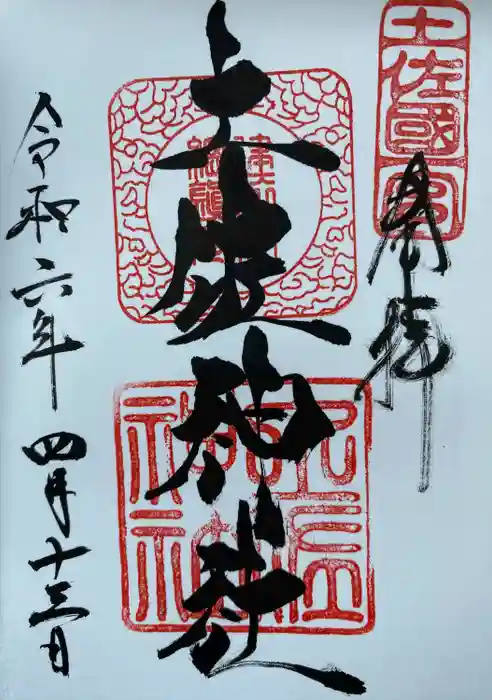 奉拝
土佐國一宮
土佐神社
令和六年四月十三日